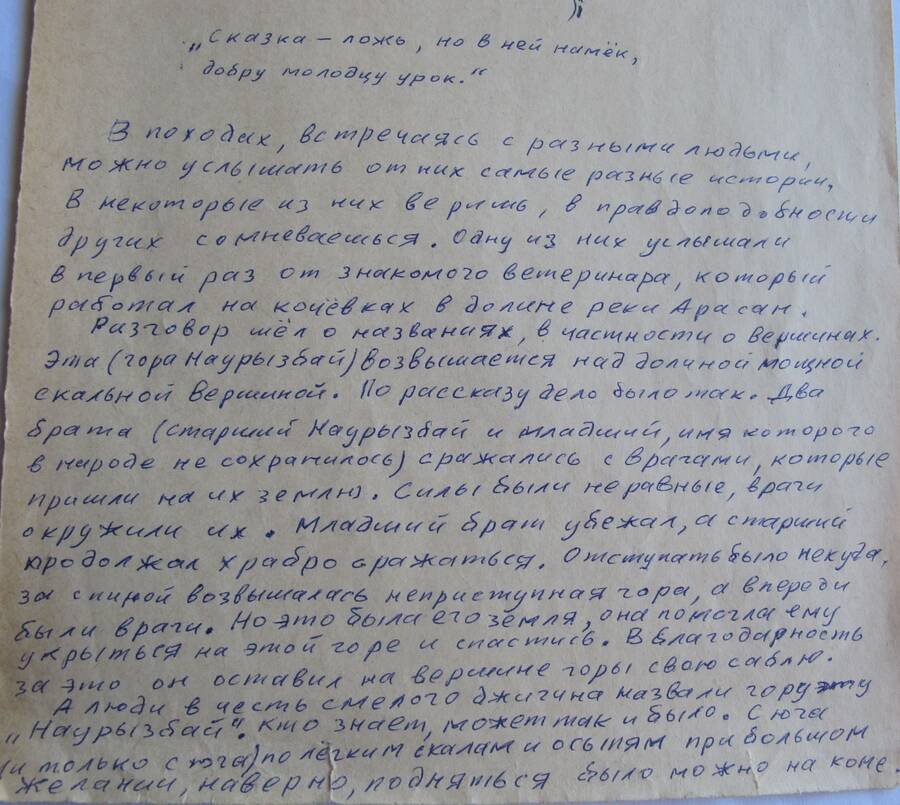 „Сказка – ложь, но в ней намёк,
добру молодцу урок."
В походах, встречаясь с разными людьми,
можно услышать от них самые разные истории.
В некоторые из них веришь, в правдоподобности
других сомневаешься. Одну из них услышали
в первый раз от знакомого ветеринара, который
работал на кочёвках в долине реки Арасан.
Разговор шёл о названиях, в частности о вершинах.
Эта (гора Наурызбай) возвышается над долиной мощной
скальной вершиной. По рассказу дело было так. Два
брата (старший Наурызбай и младший, имя которого
в народе не сохранилось) сражались с врагами, которые
пришли на их землю. Силы были неравные, враги
окружили их. Младший брат убежал, а старший
продолжал храбро сражаться. Отступать было некуда,
за спиной возвышалась неприступная гора, а впереди
были враги. Но это была его земля, она помогла ему
укрыться на этой горе и спастись. В благодарность
за это он оставил на вершине горы свою саблю.
А люди в честь смелого джигита назвали гору эту
„Наурызбай". Кто знает, может так и было. С юга
(и только с юга) по лёгким скалам и осыпям при большом
желании, наверно, подняться было можно на коне.